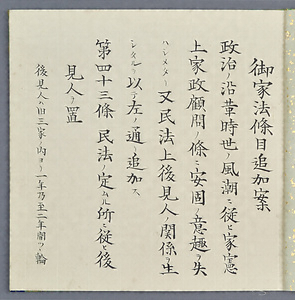 御家法條目追加案
政治ノ沿革時世ノ風潮ニ從ヒ家憲
上家政顧問ノ條ニ安固ノ意趣ヲ失
ハシメタリ又民法上後見人ノ関係ヲ生
シタルヲ以テ左ノ通リ追加ス
第四十三條 民法ノ定ムル所ニ從ヒ後
見人ヲ置
後見人ハ旧三家ノ内ヨリ一年乃至二年間ツヽ輪